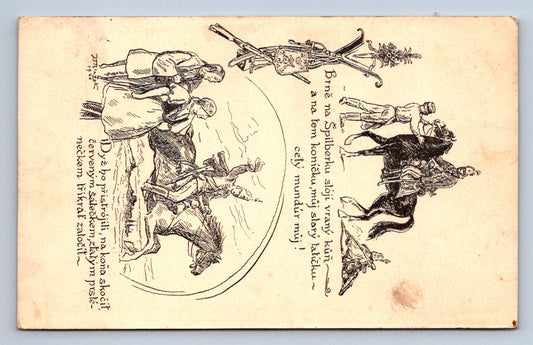 Brně na Špilberku stójí vraný kůň
a na tem koníčku, můj starý tatíčku
celý mundúr můj!
Dyž ho přistrójili, na koňa skočil,
červeným šátečkem, zlatým prste-
nečkem třikrát zatočil.